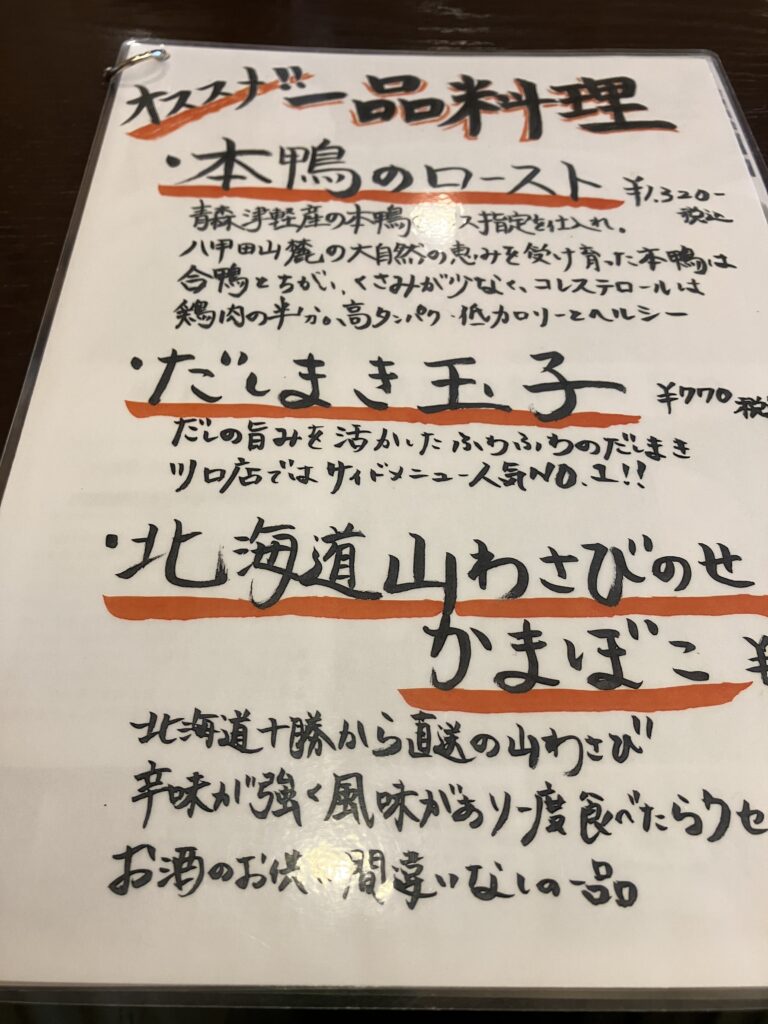 オススメ!! 一品料理
・本鴨のロースト ¥1.320- 税込
青森津軽産の本鴨 ス指定を仕入れ。
八甲田山麓の大自然の恵みを受け育った本鴨は
合鴨とちがい、くさみが少なく、コレステロールは
鶏肉の半分。高タンパク・低カロリーとヘルシー
・だしまき玉子 ¥770 税
だしの旨みを活かしたふわふわのだしまき
ツロ店ではサイドメニュー人気NO.1!!
・北海道山わさびのせ
かまぼこ ¥
北海道十勝から直送の山わさび
辛味が強く風味があり一度食べたらクセ
お酒のお供 間違いなしの一品